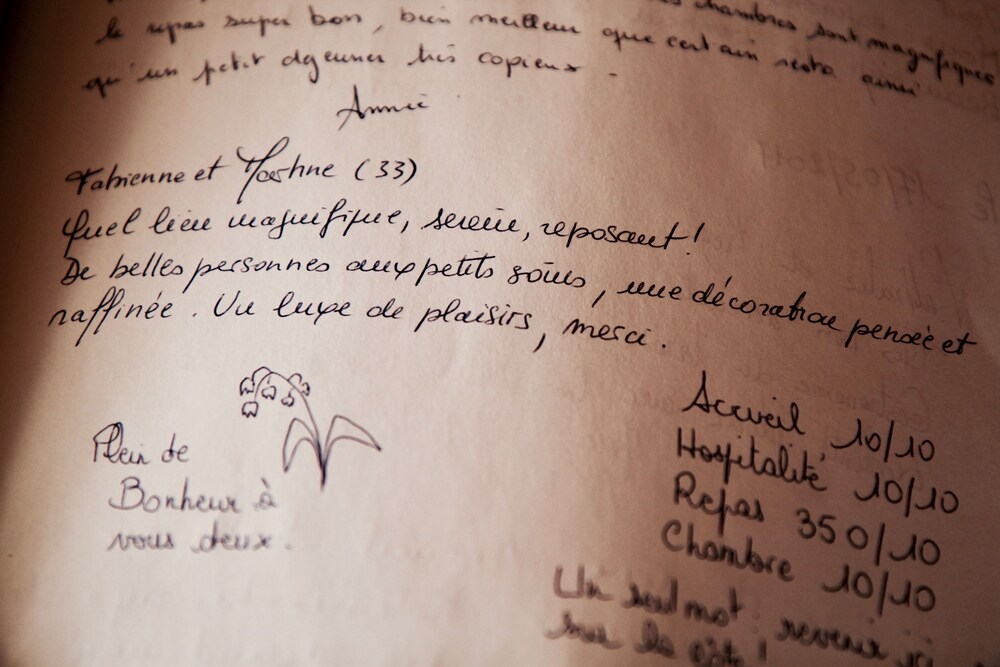 chambres sont magnifiques
le repas super bon, bien meilleur que certain resto ainsi
qu'un petit dejeuner très copieux.
Annie
Fabienne et (33)
Quel lieu magnifique, serein, reposant!
De belles personnes aux petits soins, une décoration pensée et
raffinée. Un luxe de plaisirs, merci.
Plein de
Bonheur à
vous deux.
Accueil 10/10
Hospitalité 10/10
Repas 350/10
Chambre 10/10
Un seul mot: revenir ici
sur la côte!